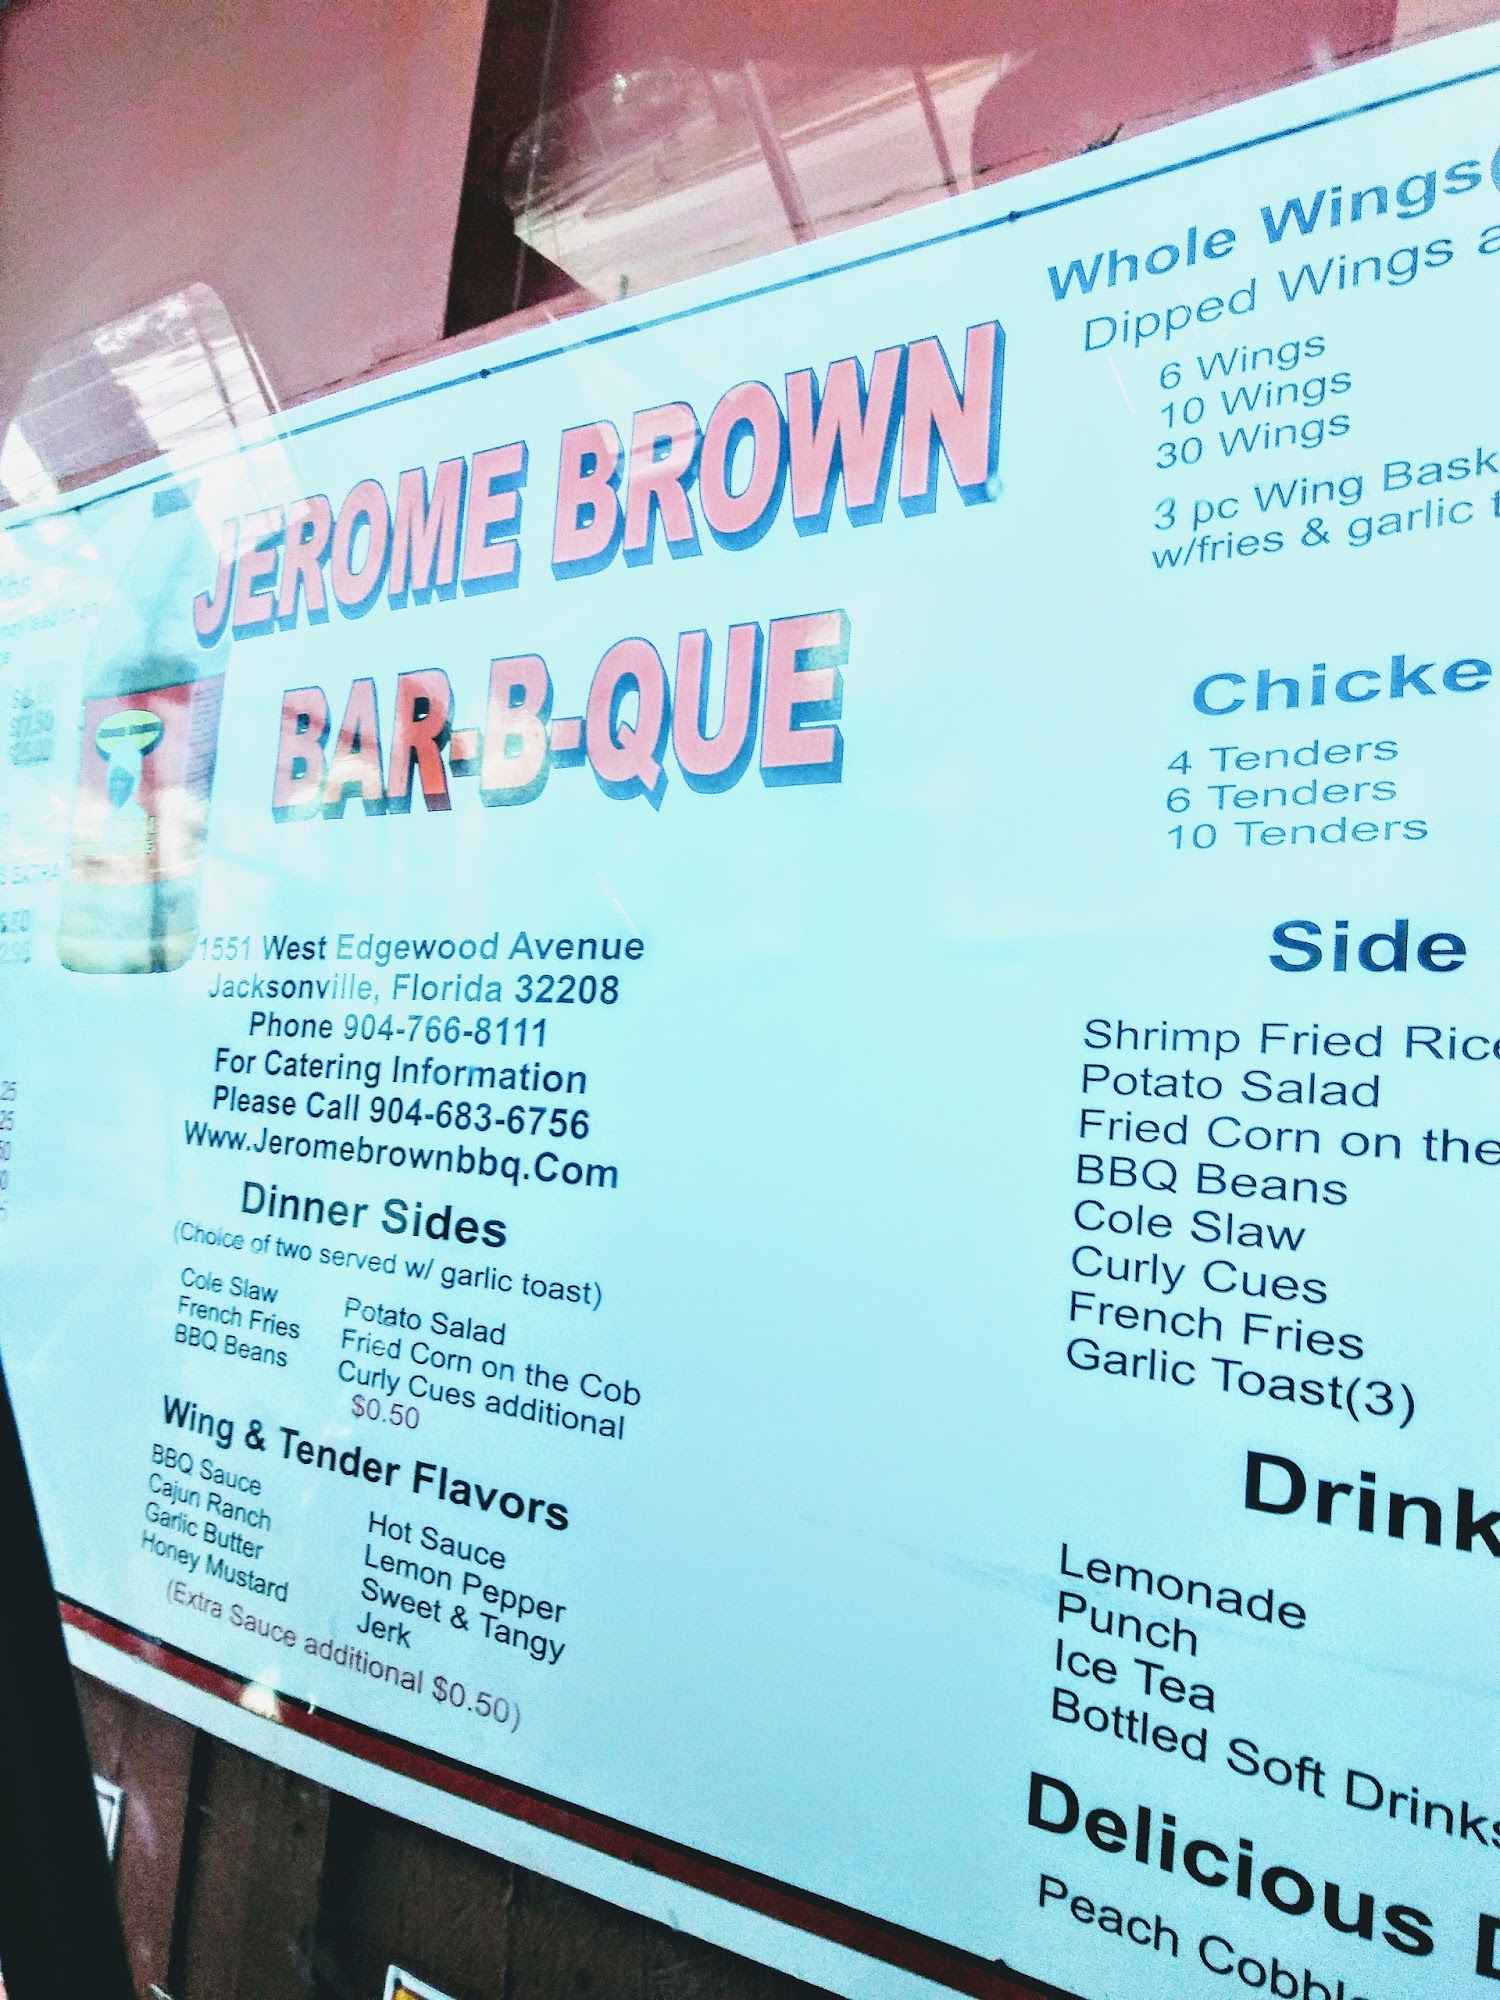 JEROME BROWN
BAR-B-QUE
1551 West Edgewood Avenue
Jacksonville, Florida 32208
Phone 904-766-8111
For Catering Information
Please Call 904-683-6756
Www.Jeromebrownbbq.Com
Dinner Sides
(Choice of two served w/ garlic toast)
Cole Slaw
French Fries
BBQ Beans
Potato Salad
Fried Corn on the Cob
Curly Cues additional
$0.50
Wing & Tender Flavors
BBQ Sauce
Cajun Ranch
Garlic Butter
Honey Mustard
Hot Sauce
Lemon Pepper
Sweet & Tangy
Jerk
(Extra Sauce additional $0.50)
Whole Wings(
Dipped Wings a
6 Wings
10 Wings
30 Wings
3 pc Wing Bask
w/fries & garlic t
Chicke
4 Tenders
6 Tenders
10 Tenders
Side
Shrimp Fried Rice
Potato Salad
Fried Corn on the
BBQ Beans
Cole Slaw
Curly Cues
French Fries
Garlic Toast(3)
Drink
Lemonade
Punch
Ice Tea
Bottled Soft Drinks
Delicious D
Peach Cobble